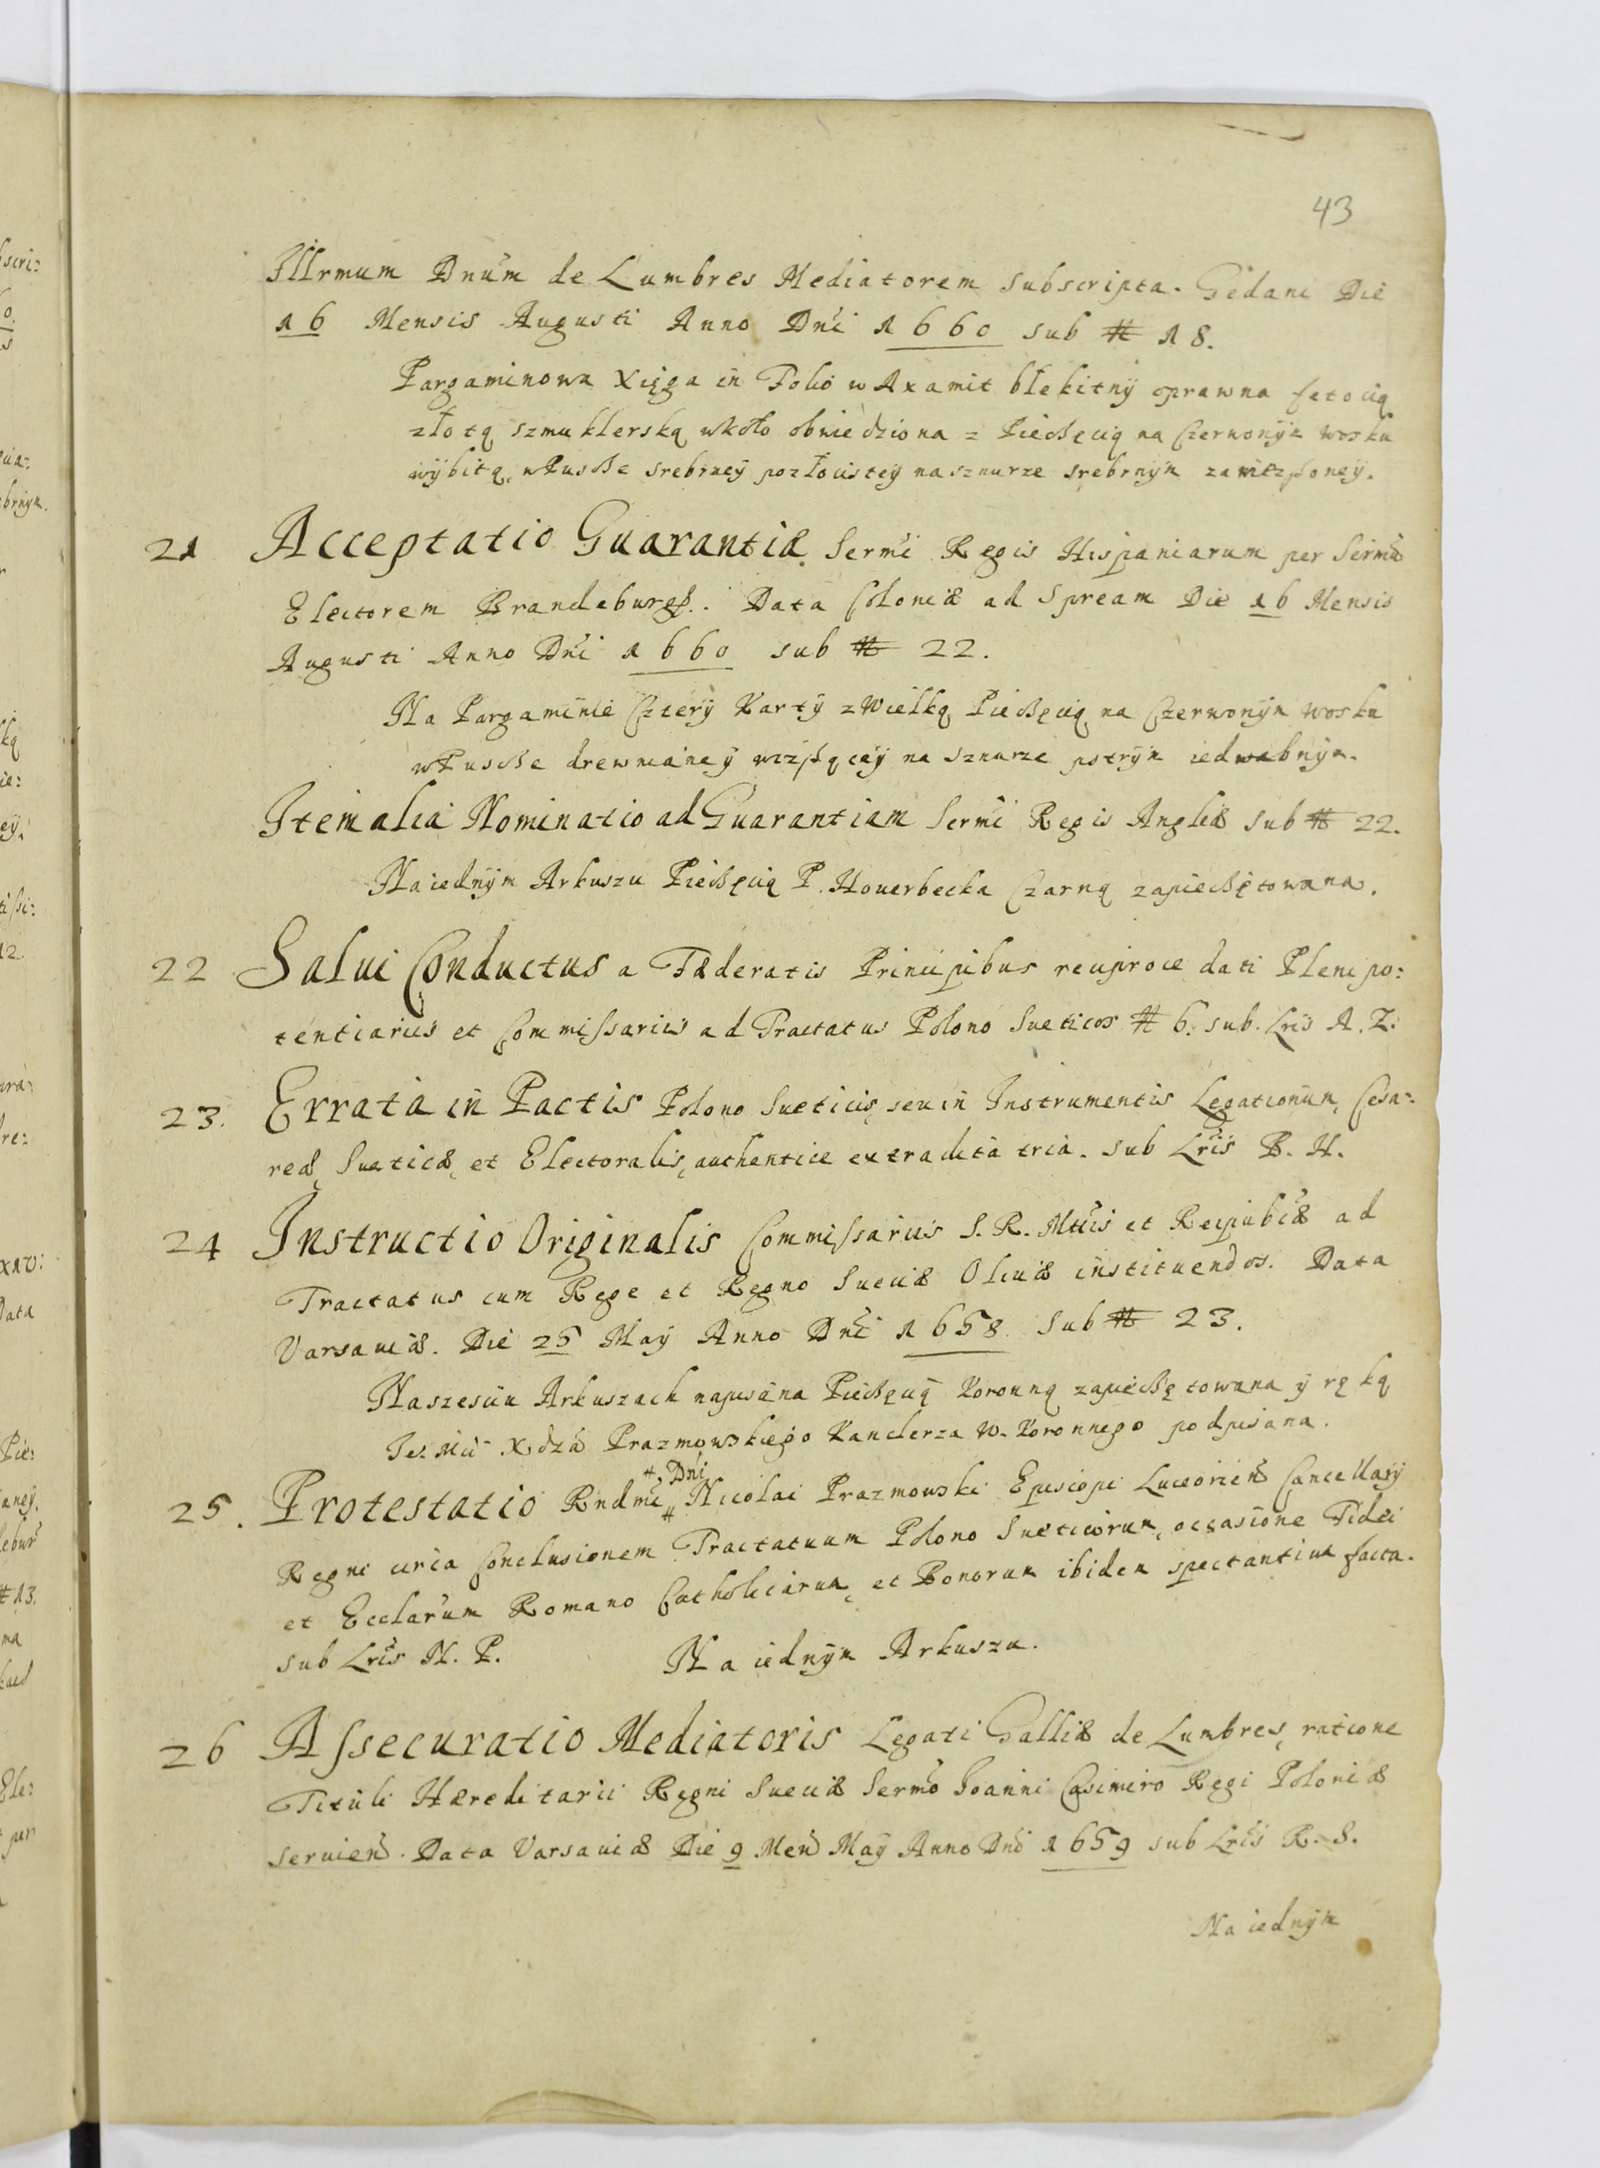 43
Illrmum Dnum de Lumbres Mediatorem subscripta. Gedani Die
16 Mensis Augusti Anno Dni 1660 sub # 18.
Pargaminowa Xięga in Folio w Axamit błekitnÿ oprawna
złotą szmuklerską wkoło obwiedziona z Pieczęcią na Czerwonÿm wosku
wÿbitą, w Puszce srebrneÿ pozłocisteÿ na sznurze srebrnÿm zawieszoneÿ.
21 Acceptatio Guarantiæ Sermi Regis Hispaniarum per Sermũ
Electorem Brandeburg. Data Coloniæ ad Spream Die 16 Mensis
Augusti Anno Dni 1660 sub # 22.
Na Pargaminie Czterÿ Kartÿ z Wielką Pieczęcią na Czerwonÿm wosku
w Puszce drewnianeÿ wiszącéÿ na sznurze pstrÿm iedwabnÿm.
Item alia Nominatio ad Guarantiam Sermi Regis Angliæ sub # 22.
Na iednÿm Arkuszu Pieczęcią P. Houerbecka Czarną zapieczętowana.
22 Salui Conductus a Fæderatis Principibus reciproce dati Plenipo:
tentiariis et Commissariis ad Tractatus Polono Sueticos # 6. sub Lris A. Z.
23. Errata in Pactis Polono Sueticis, seu in Instrumentis Legationum, Cesa:
reæ, Sueticæ, et Electoralis, authentice extradita tria. sub Lris B. H.
24 Instructio Originalis Commissariis S. R. Mttis et Reipubcæ ad
Tractatus cum Rege et Regno Sueciæ Oliuæ instituendos. Data
Varsauiæ. Die 25 Maÿ Anno Dni 1658 sub # 23.
Na szesciu Arkuszach napisana Pieczęcią Koronną zapieczętowana ÿ ręką
Je. Mci Xdza Prazmowskiego Kanclerza W. Koronnego podpisana.
Dni
25. Protestatio Rndmi # Nicolai Prazmowski Episcopi Luceorien Cancellarÿ
Regni circa Conclusionem Tractatuum Polono Sueticorum, occasione Fidei
et Ecclarum Romano Catholicarum, et Bonorum ibidem spectantium facta.
sub Lris N. P. Na iednÿm Arkuszu.
26 Assecuratio Mediatoris Legati Galliæ de Lumbres, ratione
Tituli Hæreditarii Regni Sueciæ Sermo Joanni Casimiro Regi Poloniæ
seruien. Data Varsauiæ Die 9 Men Maÿ Anno Dni 1659 sub Lris R. S.
Na iednÿm